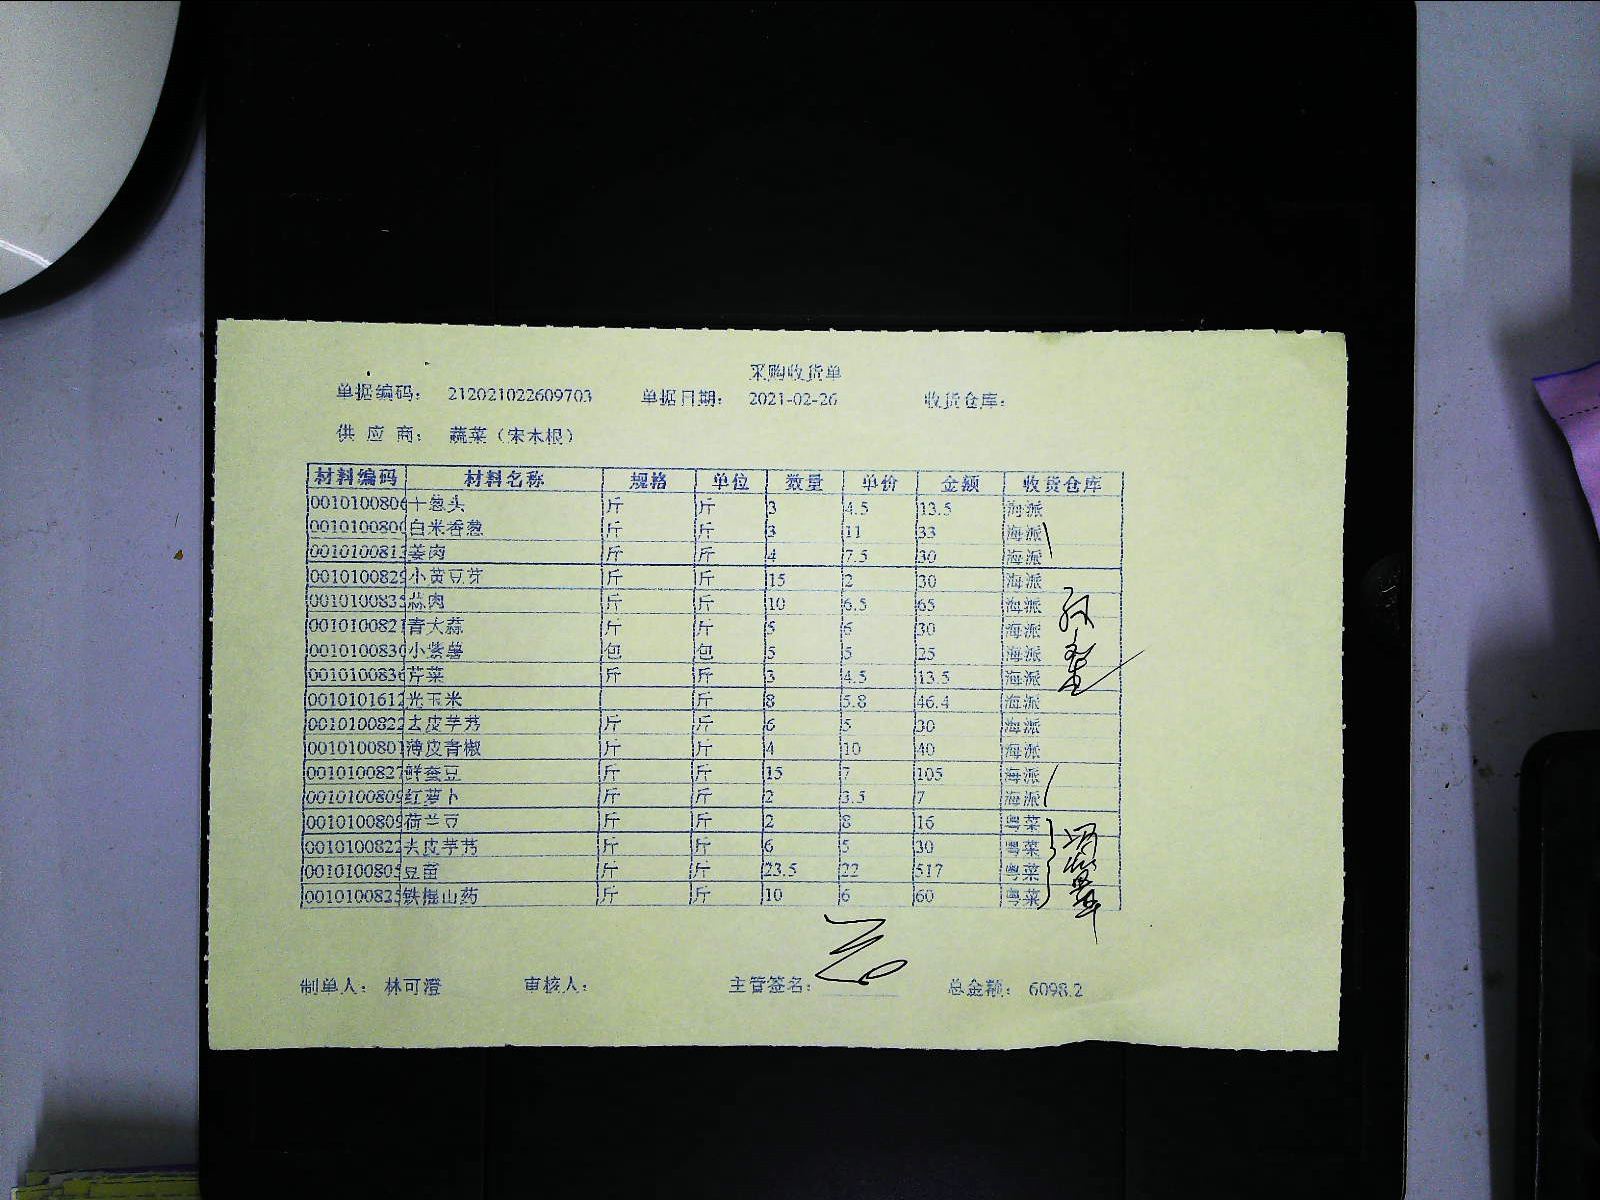 采购收货单
单据编码： 212021022609703 单据日期： 2021-02-26 收货仓库：
供 应 商： 蔬菜（宋木根）
材料编码 材料名称 规格 单位 数量 单价 金额 收货仓库
0010100806 干葱头 斤 斤 3 4.5 13.5 海派
001010080 白米香葱 斤 斤 3 11 33 海派
001010081 姜肉 斤 斤 4 7.5 30 海派
0010100829 小黄豆芽 斤 斤 15 2 30 海派
001010083 蒜肉 斤 斤 10 6.5 65 海派
001010082 青大蒜 斤 斤 5 6 30 海派
001010083 小紫薯 包 包 5 5 25 海派
001010083 芹菜 斤 斤 3 4.5 13.5 海派
0010101612 光玉米 斤 8 5.8 46.4 海派
001010082 去皮芋艿 斤 斤 6 5 30 海派
001010080 薄皮青椒 斤 斤 4 10 40 海派
001010082 鲜蚕豆 斤 斤 15 7 105 海派
0010100809 红萝卜 斤 斤 2 3.5 7 海派
0010100809 荷兰豆 斤 斤 2 8 16 粤菜
001010082 去皮芋艿 斤 斤 6 5 30 粤菜
001010080 豆苗 斤 斤 23.5 22 517 粤菜
001010082 铁棍山药 斤 斤 10 6 60 粤菜
制单人： 林可澄 审核人： 主管签名： 总金额： 6098.2